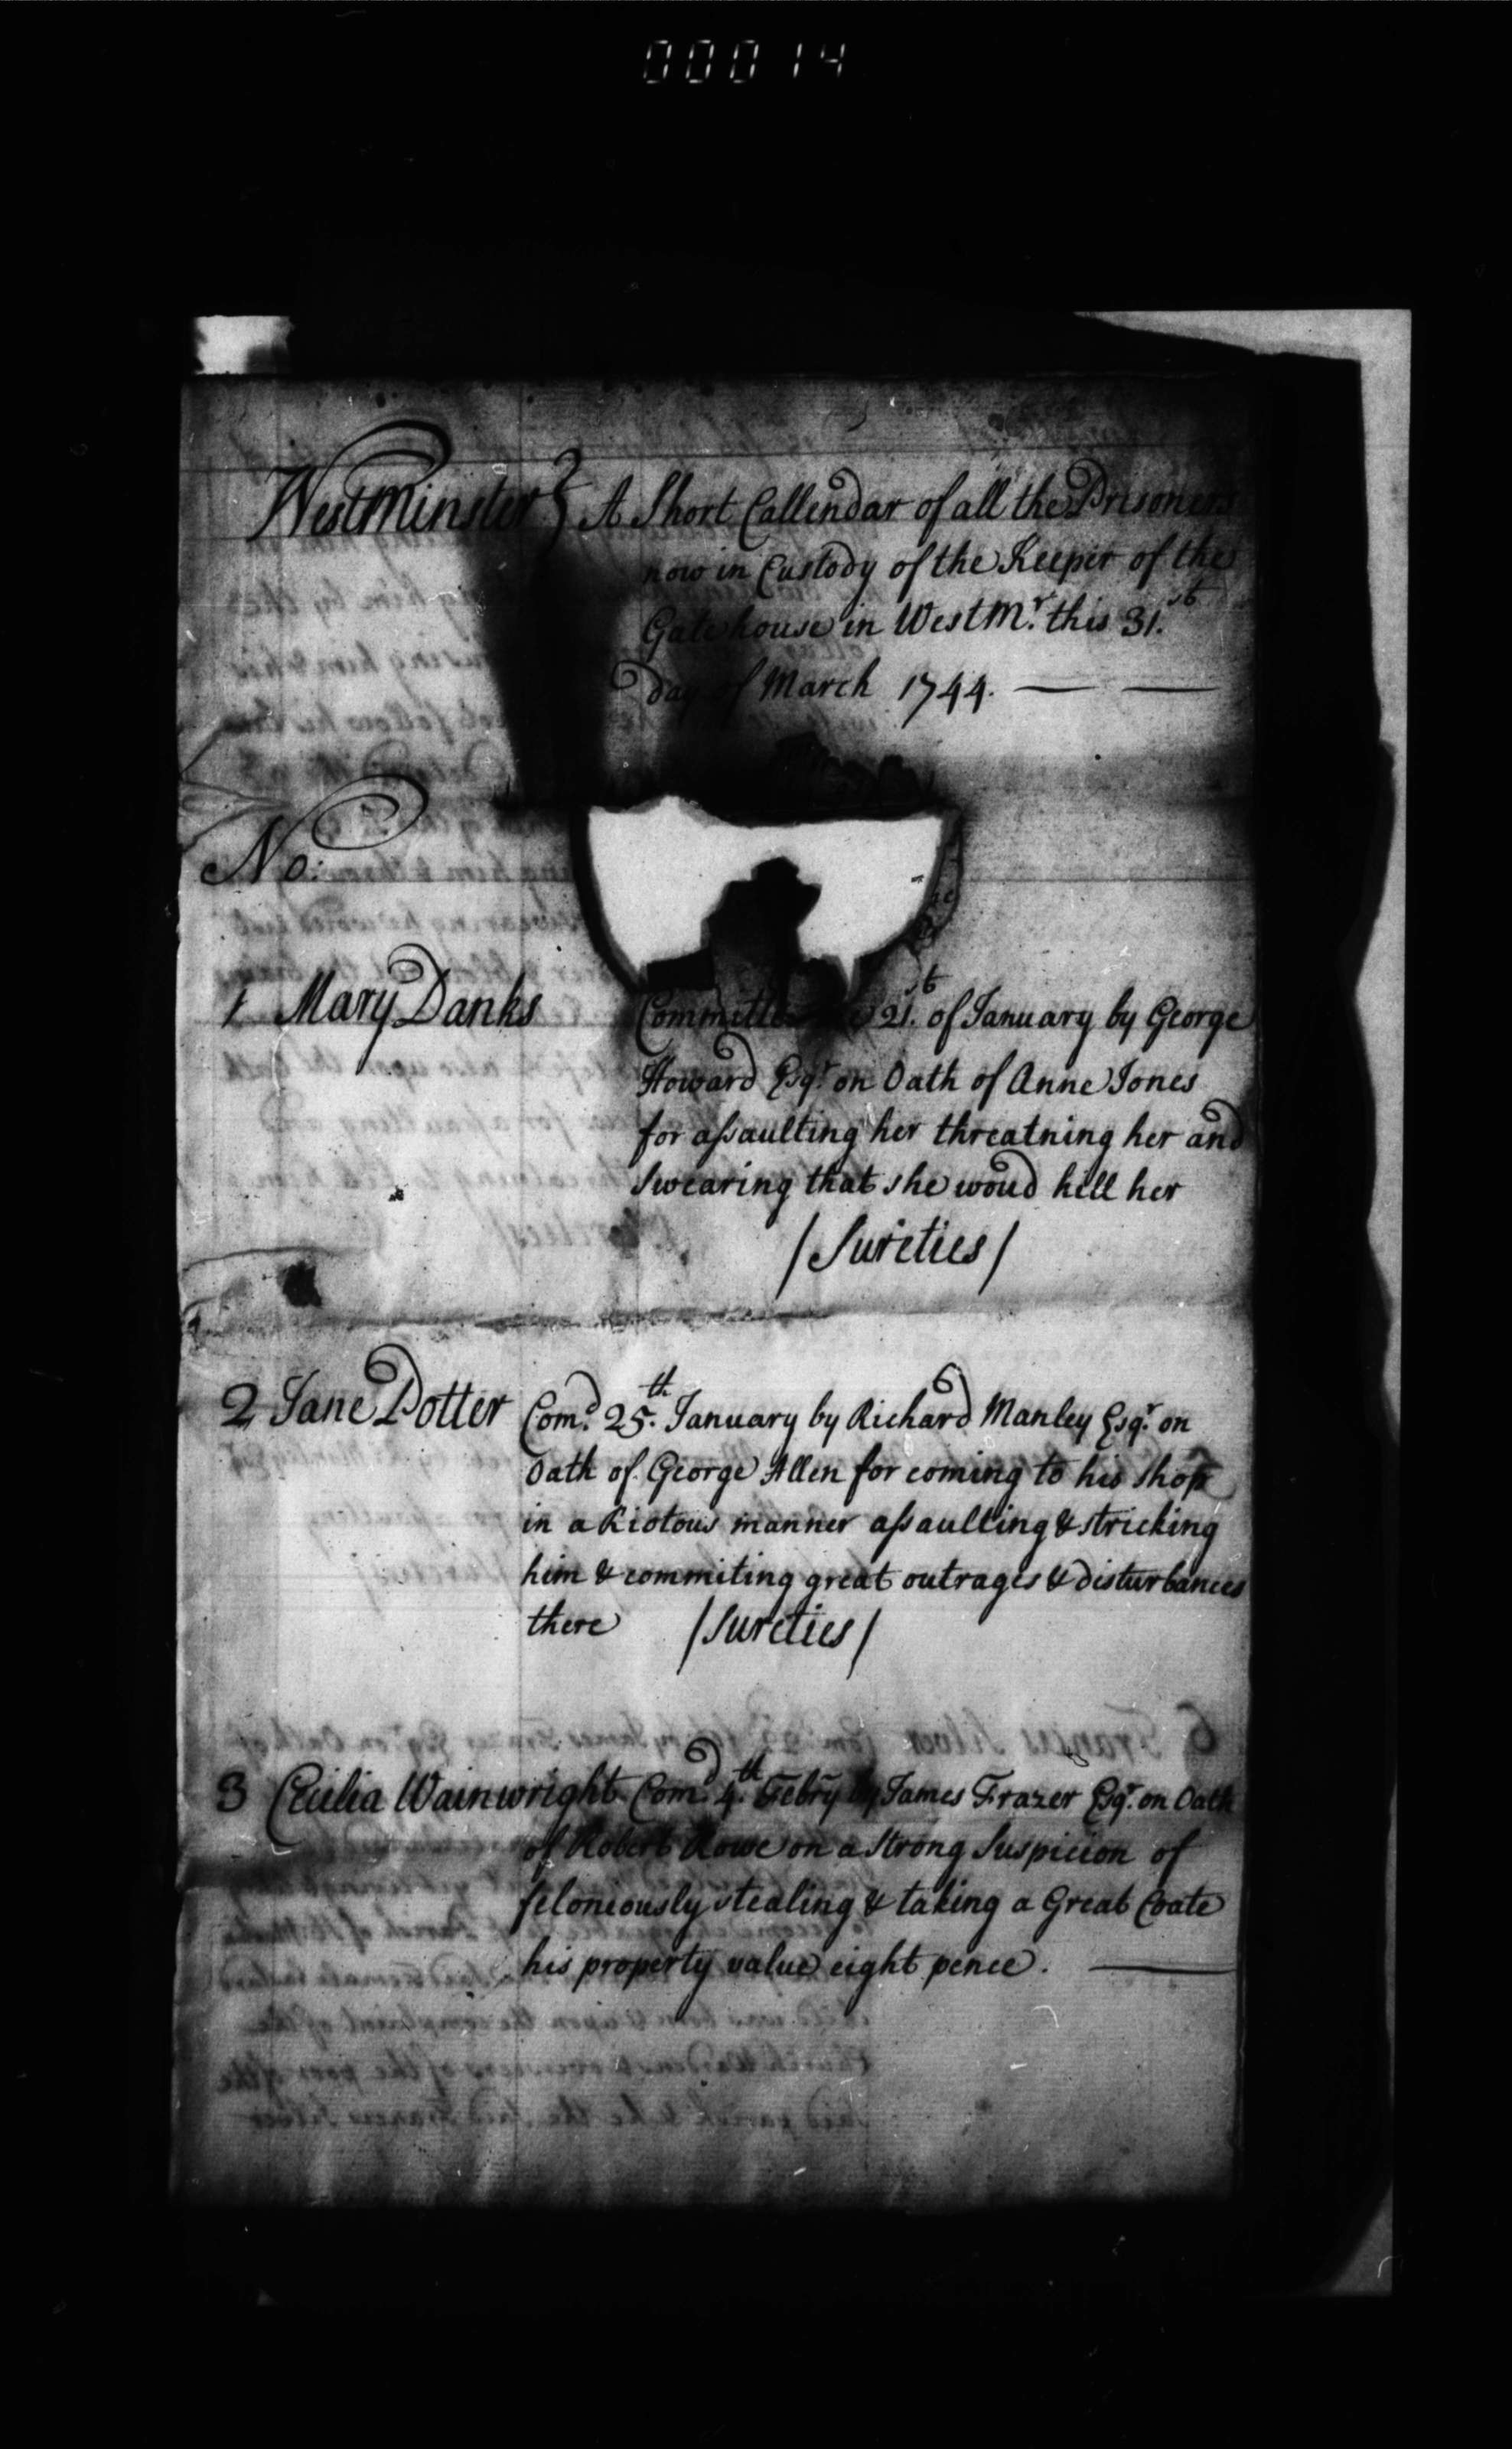 00014
Westminster } A Short Callendar of all the Prisoners
now in Custody of the Keeper of the
Gatehouse in WestMr. this 31.st
day of March 1744.
No:
1 Mary Danks Committed the 21.st of January by George
Howard Esqr. on Oath of Anne Jones
for assaulting her threatning her and
Swearing that she woud kill her
/Sureties/
2 Jane Potter Comd. 25.th January by Richard Manley Esqr. on
Oath of George Allen for coming to his Shop
in a Riotous manner assaulting & stricking
him & commiting great outrages & disturbances
there /Sureties/
3 Cecilia Wainwright Comd. 4.th Febry by James Frazer Esqr. on Oath
of Robert Rowe on a Strong Suspicion of
feloniously stealing & taking a Great Coate
his property value eight pence.